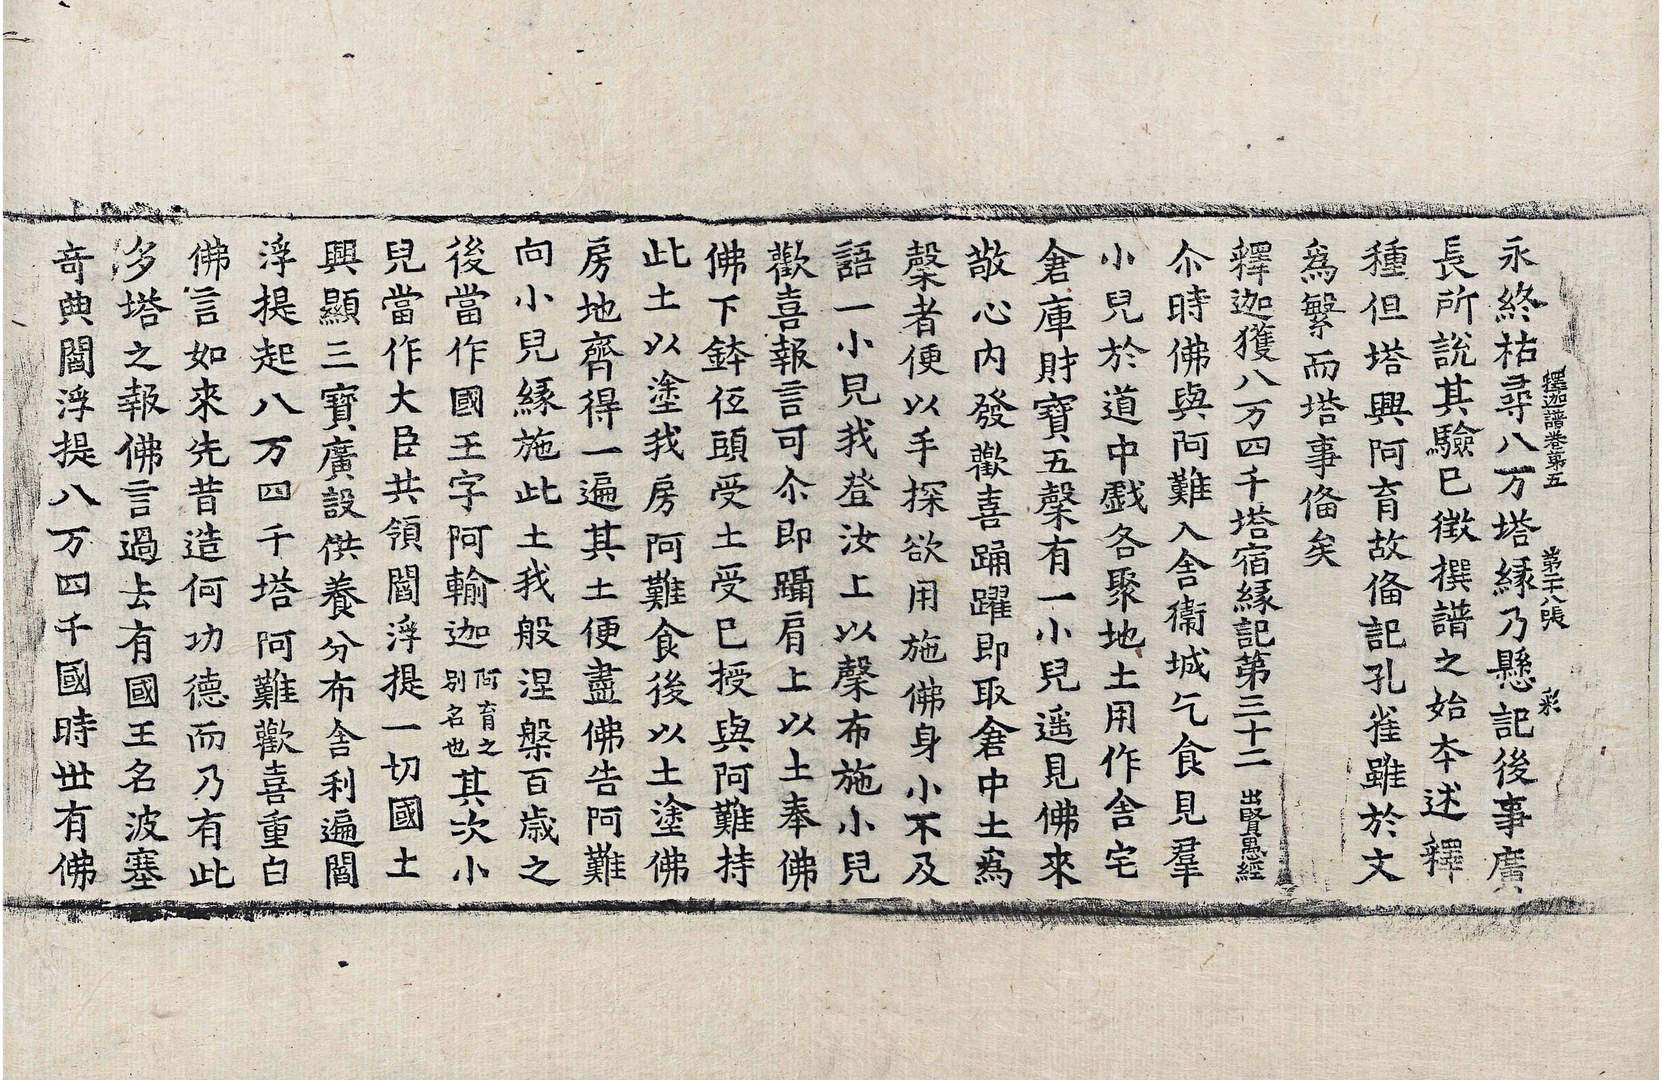 釋迦譜卷第五 第二十八張 彩
永終枯尋八万塔緣乃懸記後事廣
長所說其驗已徵撰譜之始本述釋
種但塔興阿育故俻記孔雀雖於文
爲繁而塔事俻矣
釋迦獲八万四千塔宿緣記第三十二 出賢愚經
尒時佛與阿難入舍衞城乞食見羣
小兒於道中戱各聚地土用作舍宅
倉庫財寶五糓有一小兒遥見佛來
敬心內發歡喜踊躍即取倉中土爲
糓者便以手探欲用施佛身小不及
語一小兒我登汝上以糓布施小兒
歡喜報言可尒即躡肩上以土奉佛
佛下鉢伍頭受土受已授與阿難持
此土以塗我房阿難食後以土塗佛
房地齊得一遍其土便盡佛告阿難
向小兒緣施此土我般涅槃百歲之
後當作國王字阿輸迦阿育之別名也其次小
兒當作大臣共領閻浮提一切國土
興顯三寶廣設供養分布舍利遍閻
浮提起八万四千塔阿難歡喜重白
佛言如來先昔造何功德而乃有此
多塔之報佛言過去有國王名波塞
奇典閻浮提八万四千國時世有佛